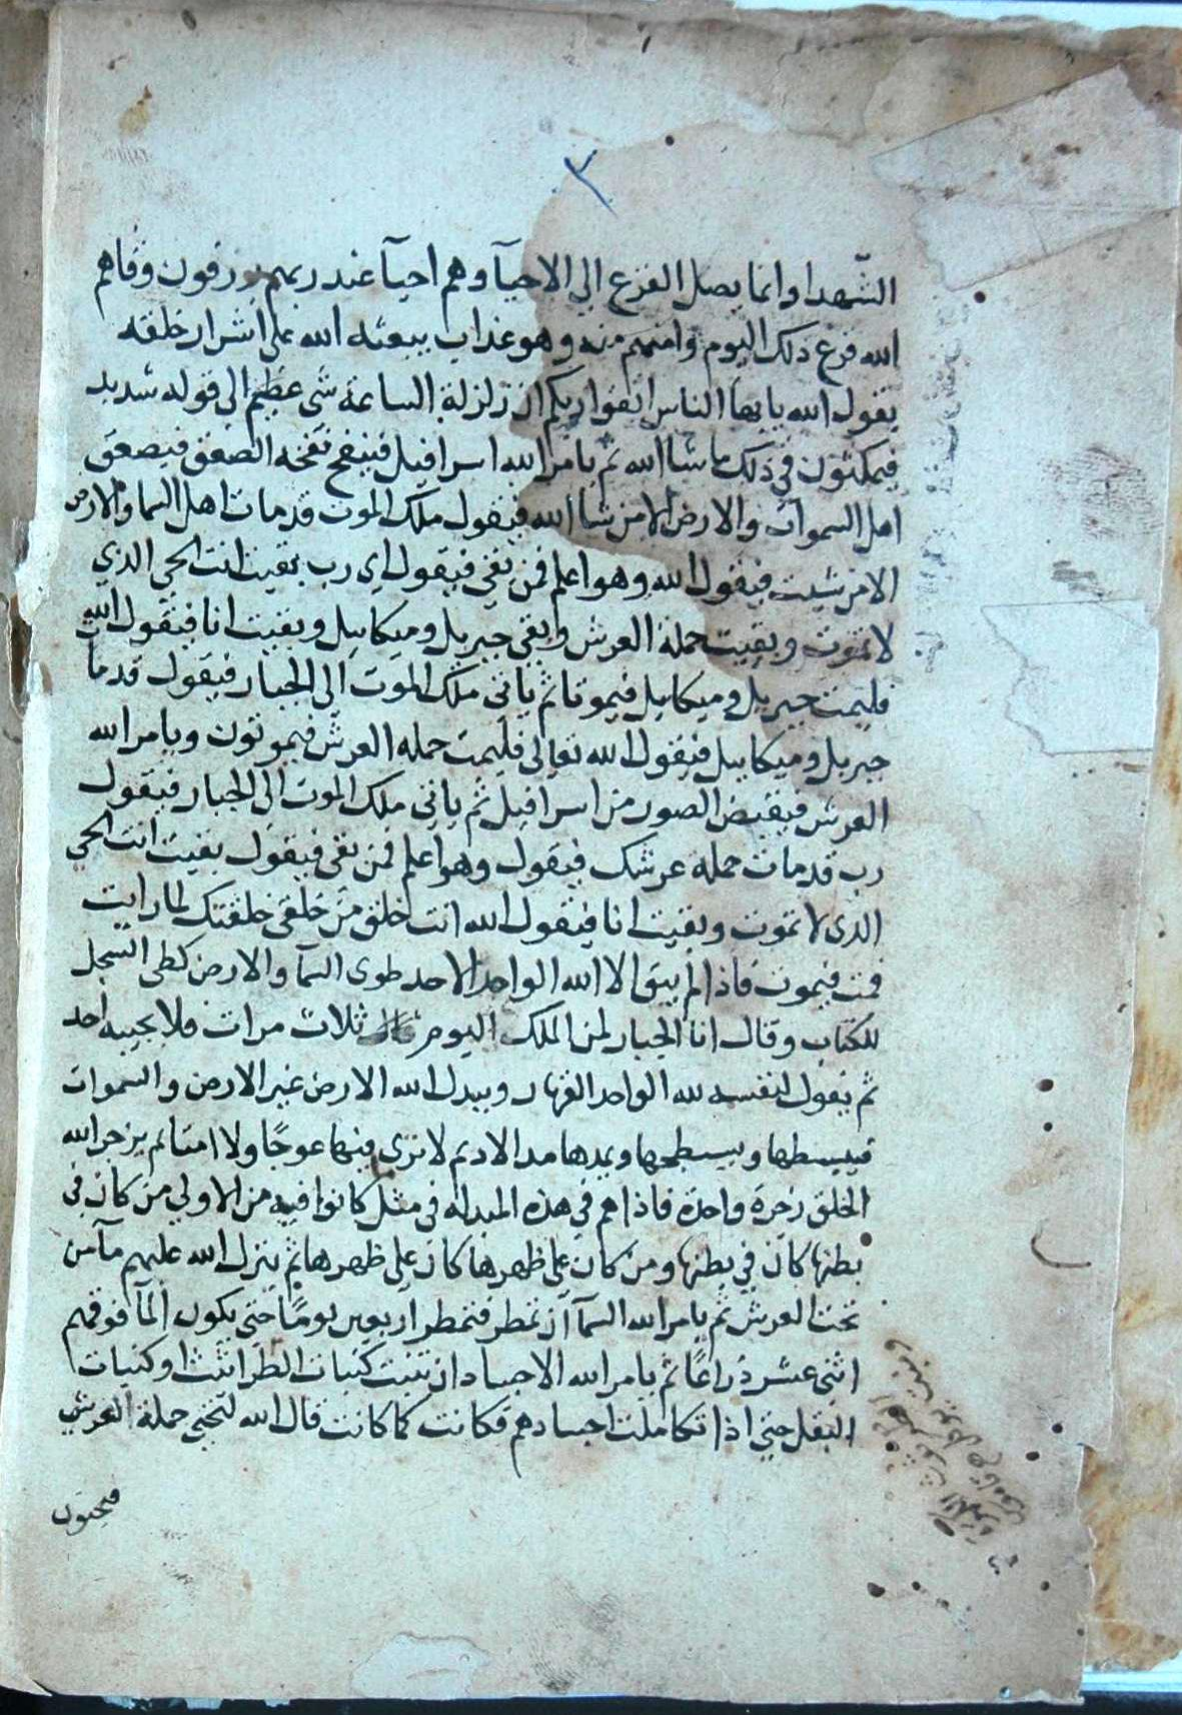 ٣
الشهدا وانما يصل الفزع الي الاحيآ وهم احيآ عند ربهم يرزقون وقاهم
الله فزع ذلك اليوم وامنهم منه وهو عذاب يبعثه الله على اشرار خلقه
يقول الله يايها الناس اتقوا ربكم ان زلزلة الساعة شى عظيم الى قوله شديد
فيمكثون في ذلك ما شا الله ثم يامر الله اسرافيل فينفخ نفخه الصعق فيصعق
اهل السموات والارض الا من شا الله فيقول ملك الموت قد مات اهل السما والارض
الا من شيت فيقول الله وهو اعلم فمن بقي فيقول اي رب بقيت انت الحي الذي
لا تموت وبقيت حملة العرش وبقي جبريل وميكاييل وبقيت انا فيقول الله
فليمت جبريل وميكاييل فيموتا ثم ياتي ملك الموت الي الجبار فيقول قد مات
جبريل وميكاييل فيقول الله تعالى فليمت حمله العرش فيموتون ويامر الله
العرش فيقبض الصور من اسرافيل ثم ياتي ملك الموت الى الجبار فيقول
رب قد مات حملة عرشك فيقول وهو اعلم فمن بقى فيقول بقيت انت الحي
الذى لا تموت وبقيت انا فيقول الله انت خلق من خلقي خلقتك لما رايت
فمت فيموت فاذا لم يبق الا الله الواحد الاحد طوى السمآ والارض كطى السجل
للكتاب وقال انا الجبار لمن الملك اليوم ثلاث مرات فلا يجيبه احد
ثم يقول لنفسه لله الواحد القهار ويبدل الله الارض غير الارض والسموات
فيبسطها ويسطحها ويمدها مد الاديم لا ترى فيها عوجًا ولا امتا ثم يزجر الله
الخلق زجرة واحدة فاذا هم في هذه المبدله في مثل كانوا فيه من الاولي من كان في
بطنها كان في بطنها ومن كان على ظهرها كان على ظهرها ثم ينزل الله عليهم مآ من
تحت العرش ثم يامر الله السمآ ان تمطر فتمطر اربعين يومًا حتى يكون المآ فوقهم
اثنى عشر ذراعًا ثم يامر الله الاجساد ان تنبت كنبات الطراثيث او كنبات
البقل حتي اذا تكاملت اجسادهم فكانت كما كانت قال الله لتحيي حملة العرش
فيحيون